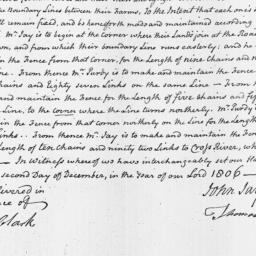 the Boundary Lines between their Farms. To the Intent that each on is
ll remain fixed, and be henceforth made and maintained according
Mr. Jay is to begin at the Corner where their Lands join at the Road
on, and from which their boundary Line runs easterly; and he
in the Fence from that corner, for the Length of nine Chains and n
line. From thence Mr. Purdy is to make and maintain the Fence
Chains and Eighty seven Links on the same Line — From th
and maintain the Fence for the Length of five chains and fif
Line, to the Corner where the Line turns northerly. Mr. Purdy
in the Fence from that corner northerly on the Line for the Length
Links. From thence Mr. Jay is to make and maintain the Fen
Length of ten Chains and ninety two Links to Cross River, wh
— In Witness whereof we have interchangeably set our Ha
second Day of December, in the Year of our Lord 1806 —
elivered in
John Jay
ce of
Thomas
Clark